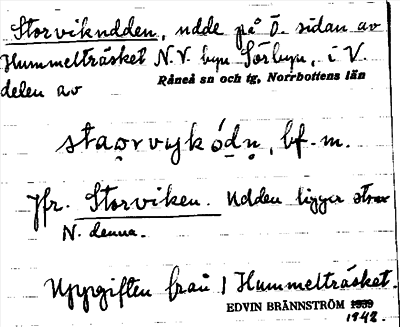 Storvikudden, udde på Ö. sidan av
Hummelträsket N.V. byn Sörbyn, i V.
Råneå sn och tg, Norrbottens län
delen av
staorvyk ódn, bf. m.
Jfr. Storviken. Udden ligger strax
N. denna.
Uppgiften från 1 Hummelträsket.
EDVIN BRÄNNSTRÖM 1939
1942.